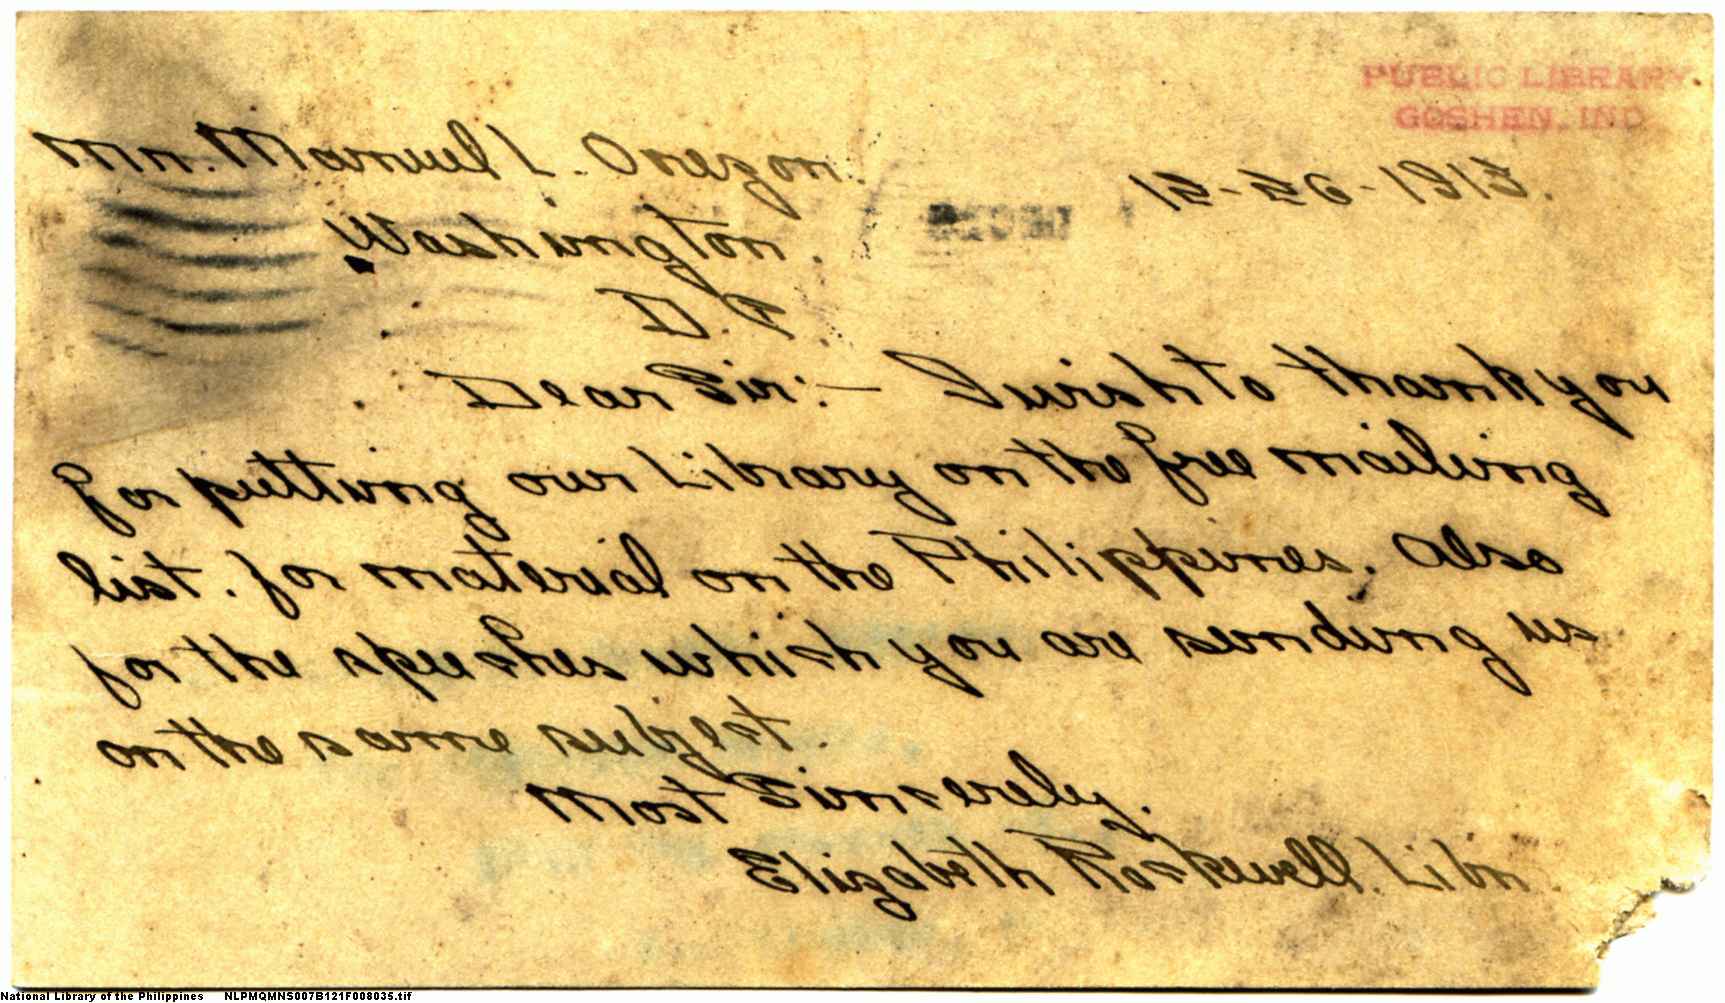 PUBLIC LIBRARY
GOSHEN, IND.
Mr. Manuel L. Onezon.
12-26-1913.
Washington.
D.C.
Dear Sir:— I wish to thank you
for putting our Library on the free mailing
list. for material on the Philippines. Also
for the speeches which you are sending us
on the same subject.
Most Sincerely.
Elizabeth Rockwell. Libn.
National Library of the Philippines NLPMQMNS007B121F008035.tif